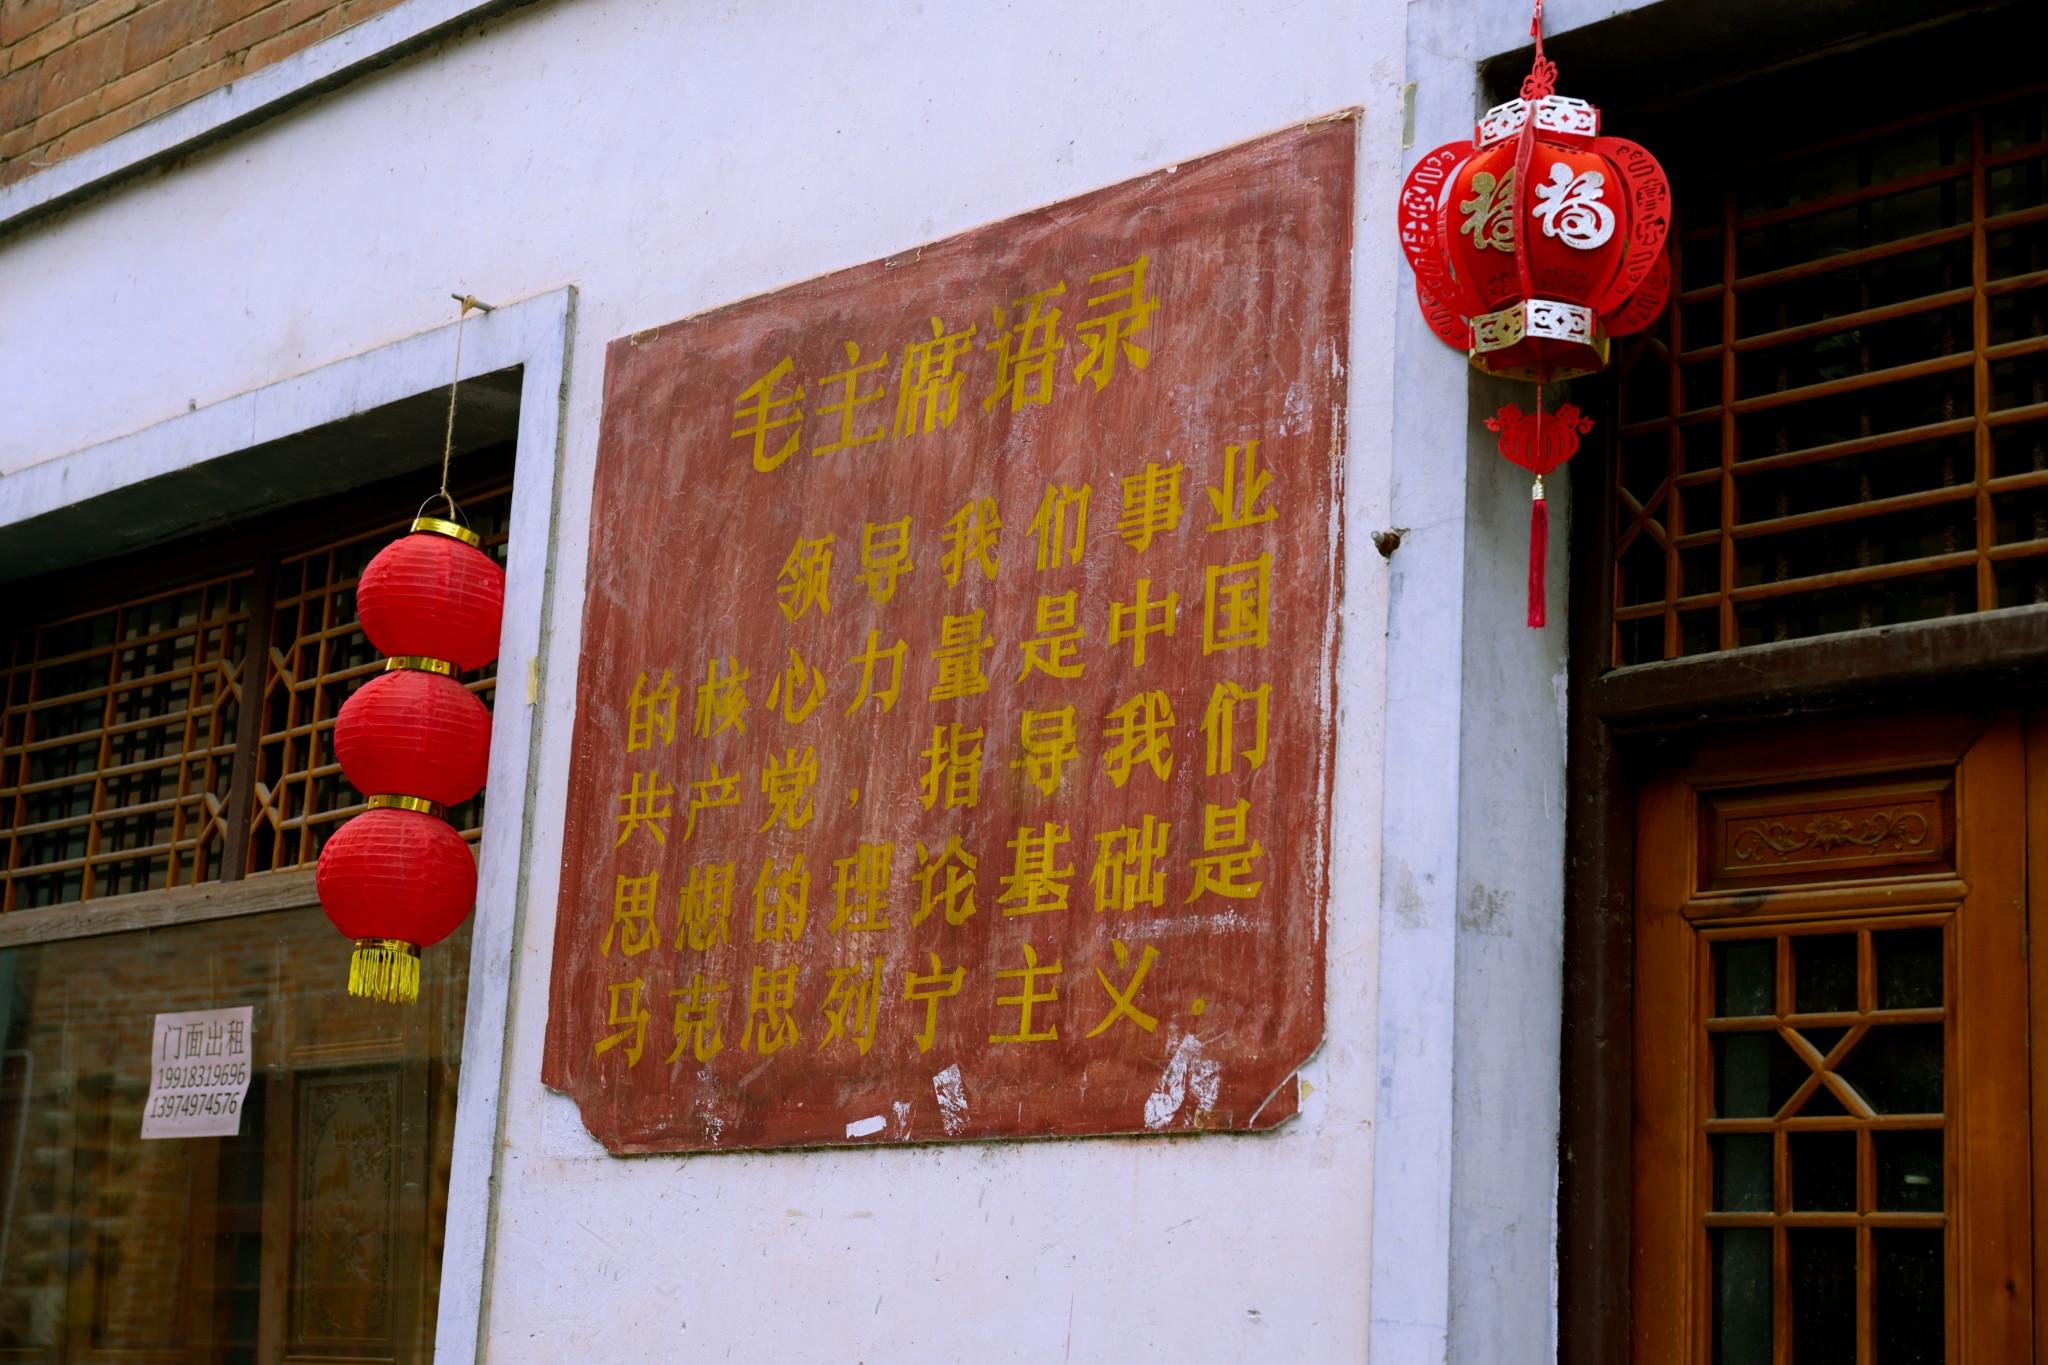 毛主席语录
领导我们事业
的核心力量是中国
共产党，指导我们
思想的理论基础是
马克思列宁主义。
福 福
门面出租
19918319696
13974974576